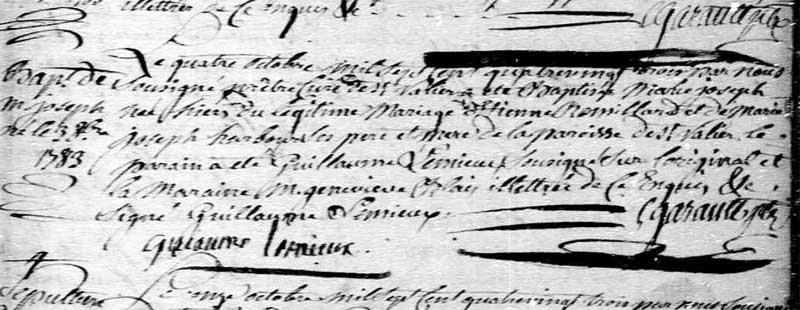 illettrés de ce Enquis &c. CGarault ptr
Le quatre octobre mil sept cent quatrevingt trois par nous
Bapt. de Sousigné prêtre curé de St Valier a eté Baptisé Marie Joseph
M. Joseph née hier du légitime Mariage d'Etienne Remillard et de Marie
née le 3 8bre Joseph pere et mere de la paroisse de St Valier. Le
1783 parain a eté Guillaume Lemieux sousigné sur l'original et
la Maraine M. genevieve Blais illettrée de ce Enquis &c.
Signé Guillaume Lemieux. CGarault ptr
Guillaume Lemieux.
Sepulture Le onze octobre mil sept cent quatrevingt trois par nous sousigné